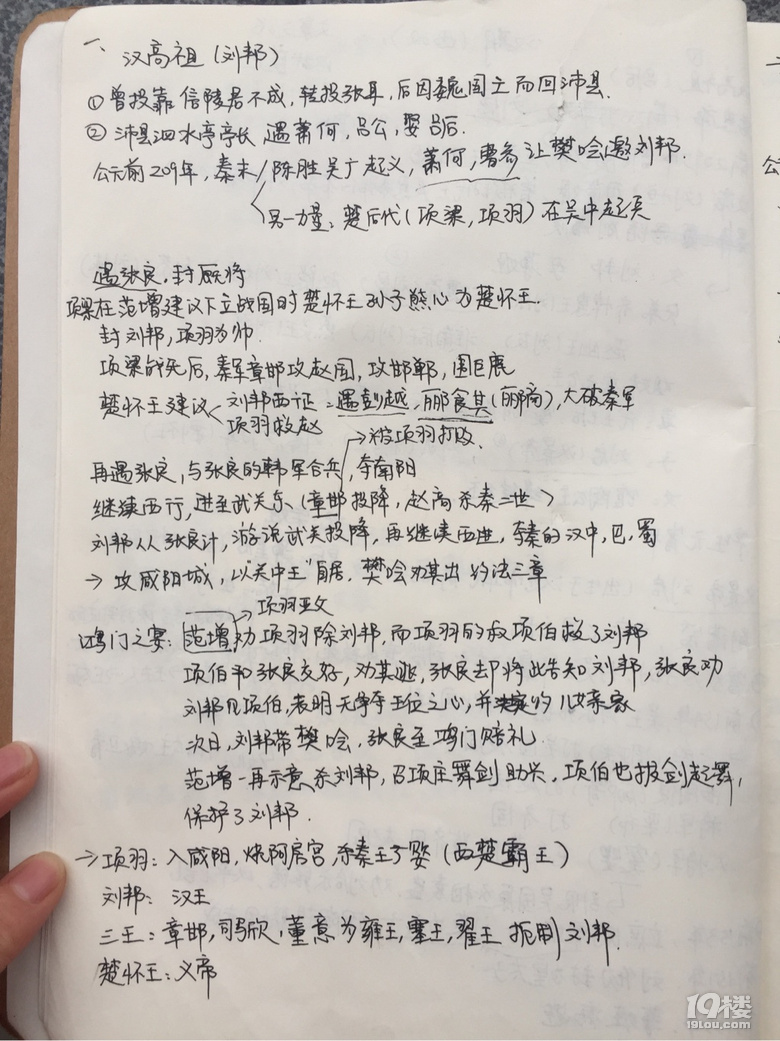 一、汉高祖（刘邦）
①曾投靠信陵君不成，转投张耳，后因魏国亡而回沛县.
②沛县泗水亭亭长，遇萧何，吕公，娶吕后.
公元前209年，秦末 陈胜吴广起义，萧何，曹参让樊哙邀刘邦.
另一力量：楚后代（项梁，项羽）在吴中起兵
遇张良，封厩将
项梁在范增建议下立战国时楚怀王孙子熊心为楚怀王.
封刘邦，项羽为帅.
项梁战死后，秦军章邯攻赵国，攻邯郸，围巨鹿
楚怀王建议 刘邦西征：遇彭越，郦食其（郦商），大破秦军
项羽救赵
→被项羽打败.
再遇张良，与张良的韩军合兵，夺南阳
继续西行，进至武关东（章邯投降，赵高杀秦二世）
刘邦从张良计，游说武关投降，再继续西进，夺秦的汉中，巴，蜀
→攻咸阳城，以"关中王"自居，樊哙劝其出 约法三章
→项羽亚父
鸿门之宴：范增劝项羽除刘邦，而项羽的叔项伯救了刘邦
项伯和张良交好，劝其逃，张良却将此告知刘邦，张良劝
刘邦见项伯，表明无争王位之心，并约儿女亲家
次日，刘邦带樊哙，张良至鸿门赔礼.
范增一再示意杀刘邦，召项庄舞剑助兴，项伯也拔剑起舞，
保护了刘邦.
→项羽：入咸阳，烧阿房宫，杀秦王子婴（西楚霸王）
刘邦：汉王
三王：章邯，司马欣，董意为雍王，塞王，翟王 扼制刘邦.
楚怀王：义帝
19楼
19lou.com